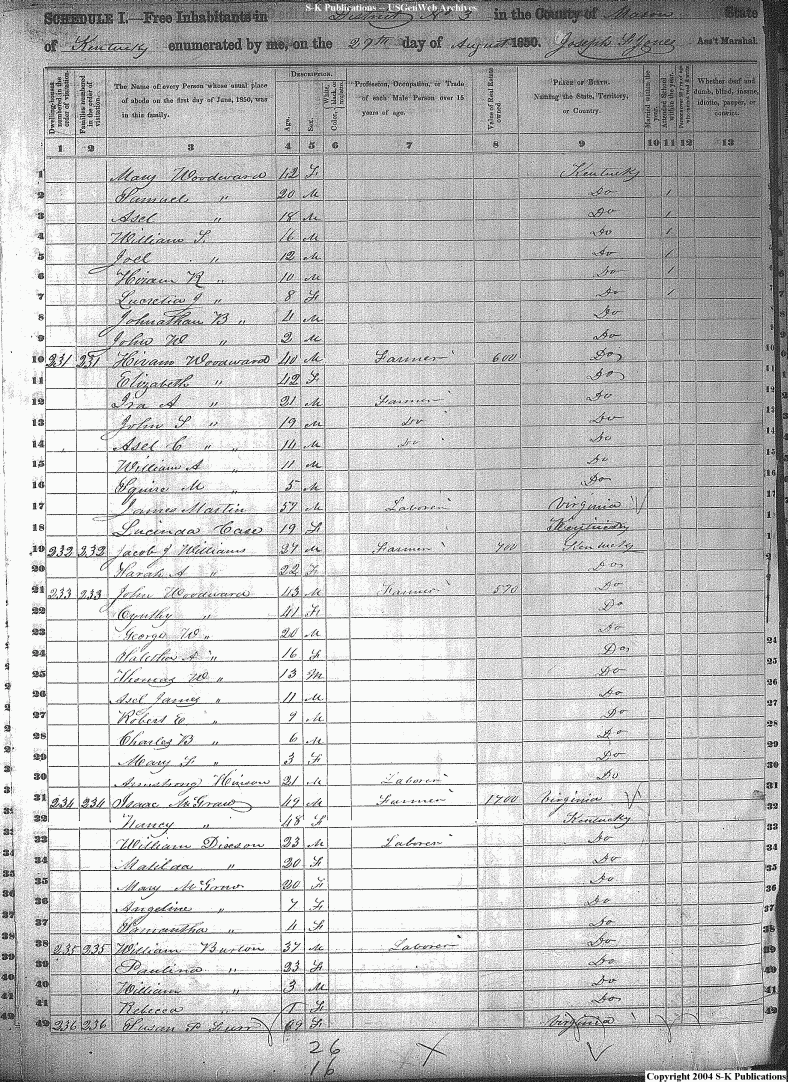 S-K Publications – USGenWeb Archives
SCHEDULE I.—Free Inhabitants in District No 3 in the County of Mason State
of Kentucky enumerated by me, on the 29th day of August 1850. Joseph Ass't Marshal.
Dwelling-houses numbered in the order of visitation.
Families numbered in the order of visitation.
The Name of every Person whose usual place of abode on the first day of June, 1850, was in this family.
DESCRIPTION.
Age.
Sex.
Color, White, black, or mulatto.
Profession, Occupation, or Trade of each Male Person over 15 years of age.
Value of Real Estate owned.
PLACE OF BIRTH.
Naming the State, Territory, or Country.
Married within the year.
Attended School within the year.
Whether deaf and dumb, blind, insane, idiotic, pauper, or convict.
1 2 3 4 5 6 7 8 9 10 11 12 13
1 Mary Woodward 42 F Kentucky
2 Samuel " 20 M Do 1
3 Asel " 18 M Do 1
4 William S. 16 M Do 1
5 Joel " 12 M Do 1
6 Hiram R " 10 M Do 1
7 Lucretia J " 8 F Do 1
8 Johnathan B " 4 M Do
9 John W " 2 M Do
10 231 231 Hiram Woodward 40 M Farmer 600 Do
11 Elizabeth " 42 F Do
12 Ira A " 21 M Farmer Do
13 John S " 19 M Do Do
14 Asel C " " 14 M Do Do
15 William A " 11 M Do
16 Squire M " 5 M Do
17 James Martin 57 M Laborer Virginia
18 Lucinda Case 19 F Kentucky
19 232 232 Jacob J Williams 27 M Farmer 700 Kentucky
20 Sarah A " 22 F Do
21 233 233 John Woodward 43 M Farmer 570 Do
22 Cynthy " 41 F Do
23 George W " 20 M Do
24 Talitha A " 16 F Do
25 Thomas W " 13 M Do
26 Asel James " 11 M Do
27 Robert E " 9 M Do
28 Charles B " 6 M Do
29 Mary F " 3 F Do
30 Armstrong Hinson 21 M Laborer Do
31 234 234 Isaac McGraw 49 M Farmer 1700 Virginia
32 Nancy " 48 F Kentucky
33 William Dixson 23 M Laborer Do
34 Matilda " 20 F Do
35 Mary McGraw 20 F Do
36 Angeline " 7 F Do
37 Samantha " 4 F Do
38 235 235 William Burton 37 M Laborer Do
39 Paulina " 23 F Do
40 William " 3 M Do
41 Rebecca " 1 F Do
42 236 236 Susan P 69 F Virginia
26
16
Copyright 2004 S-K Publications